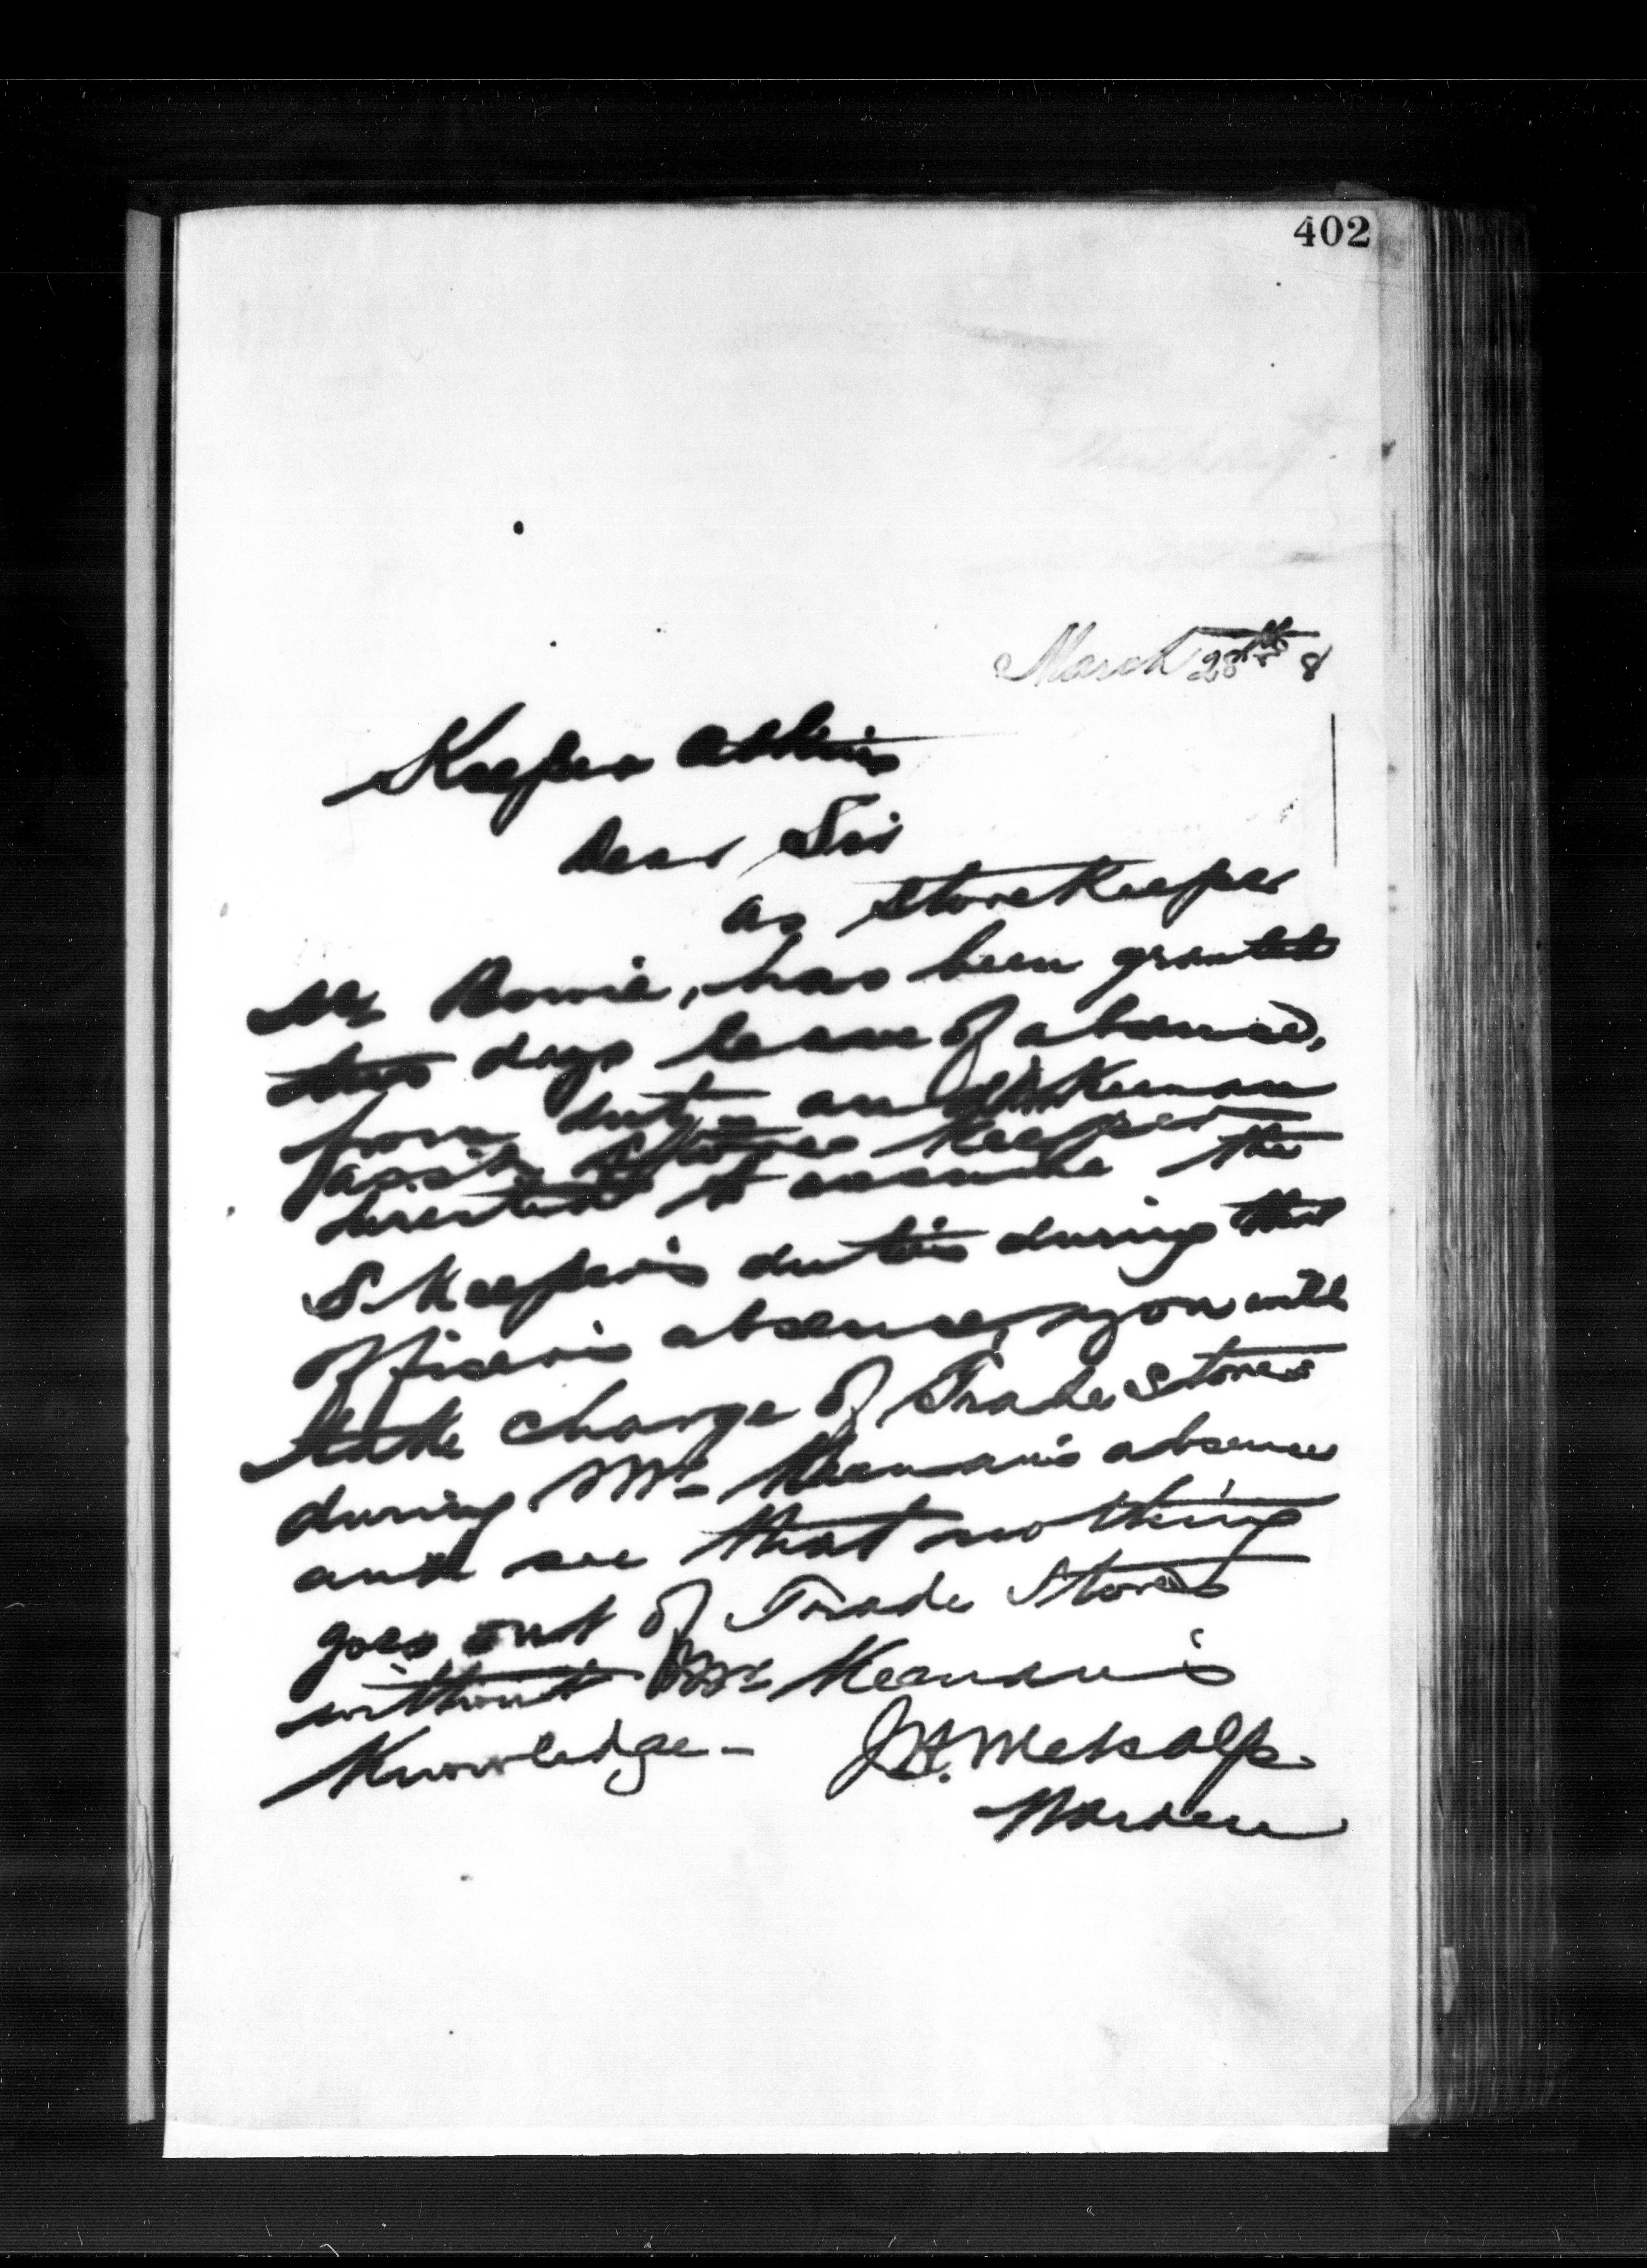 402
March 28th 8
Keeper Atkins
Dear Sir
as Storekeeper
Mr Bowie, has been granted
two days leave of absence,
from duty and Mr Keenan
ass't Stores Keeper
directed to assume the
S. Keeper's duties during that
officer's absence, you will
take charge of Trade Stores
during Mr Keenan's absence
and see that nothing
goes out of Trade Stores
without Mr Keenan's
Knowledge -
J.H. Metcalfe
Warden